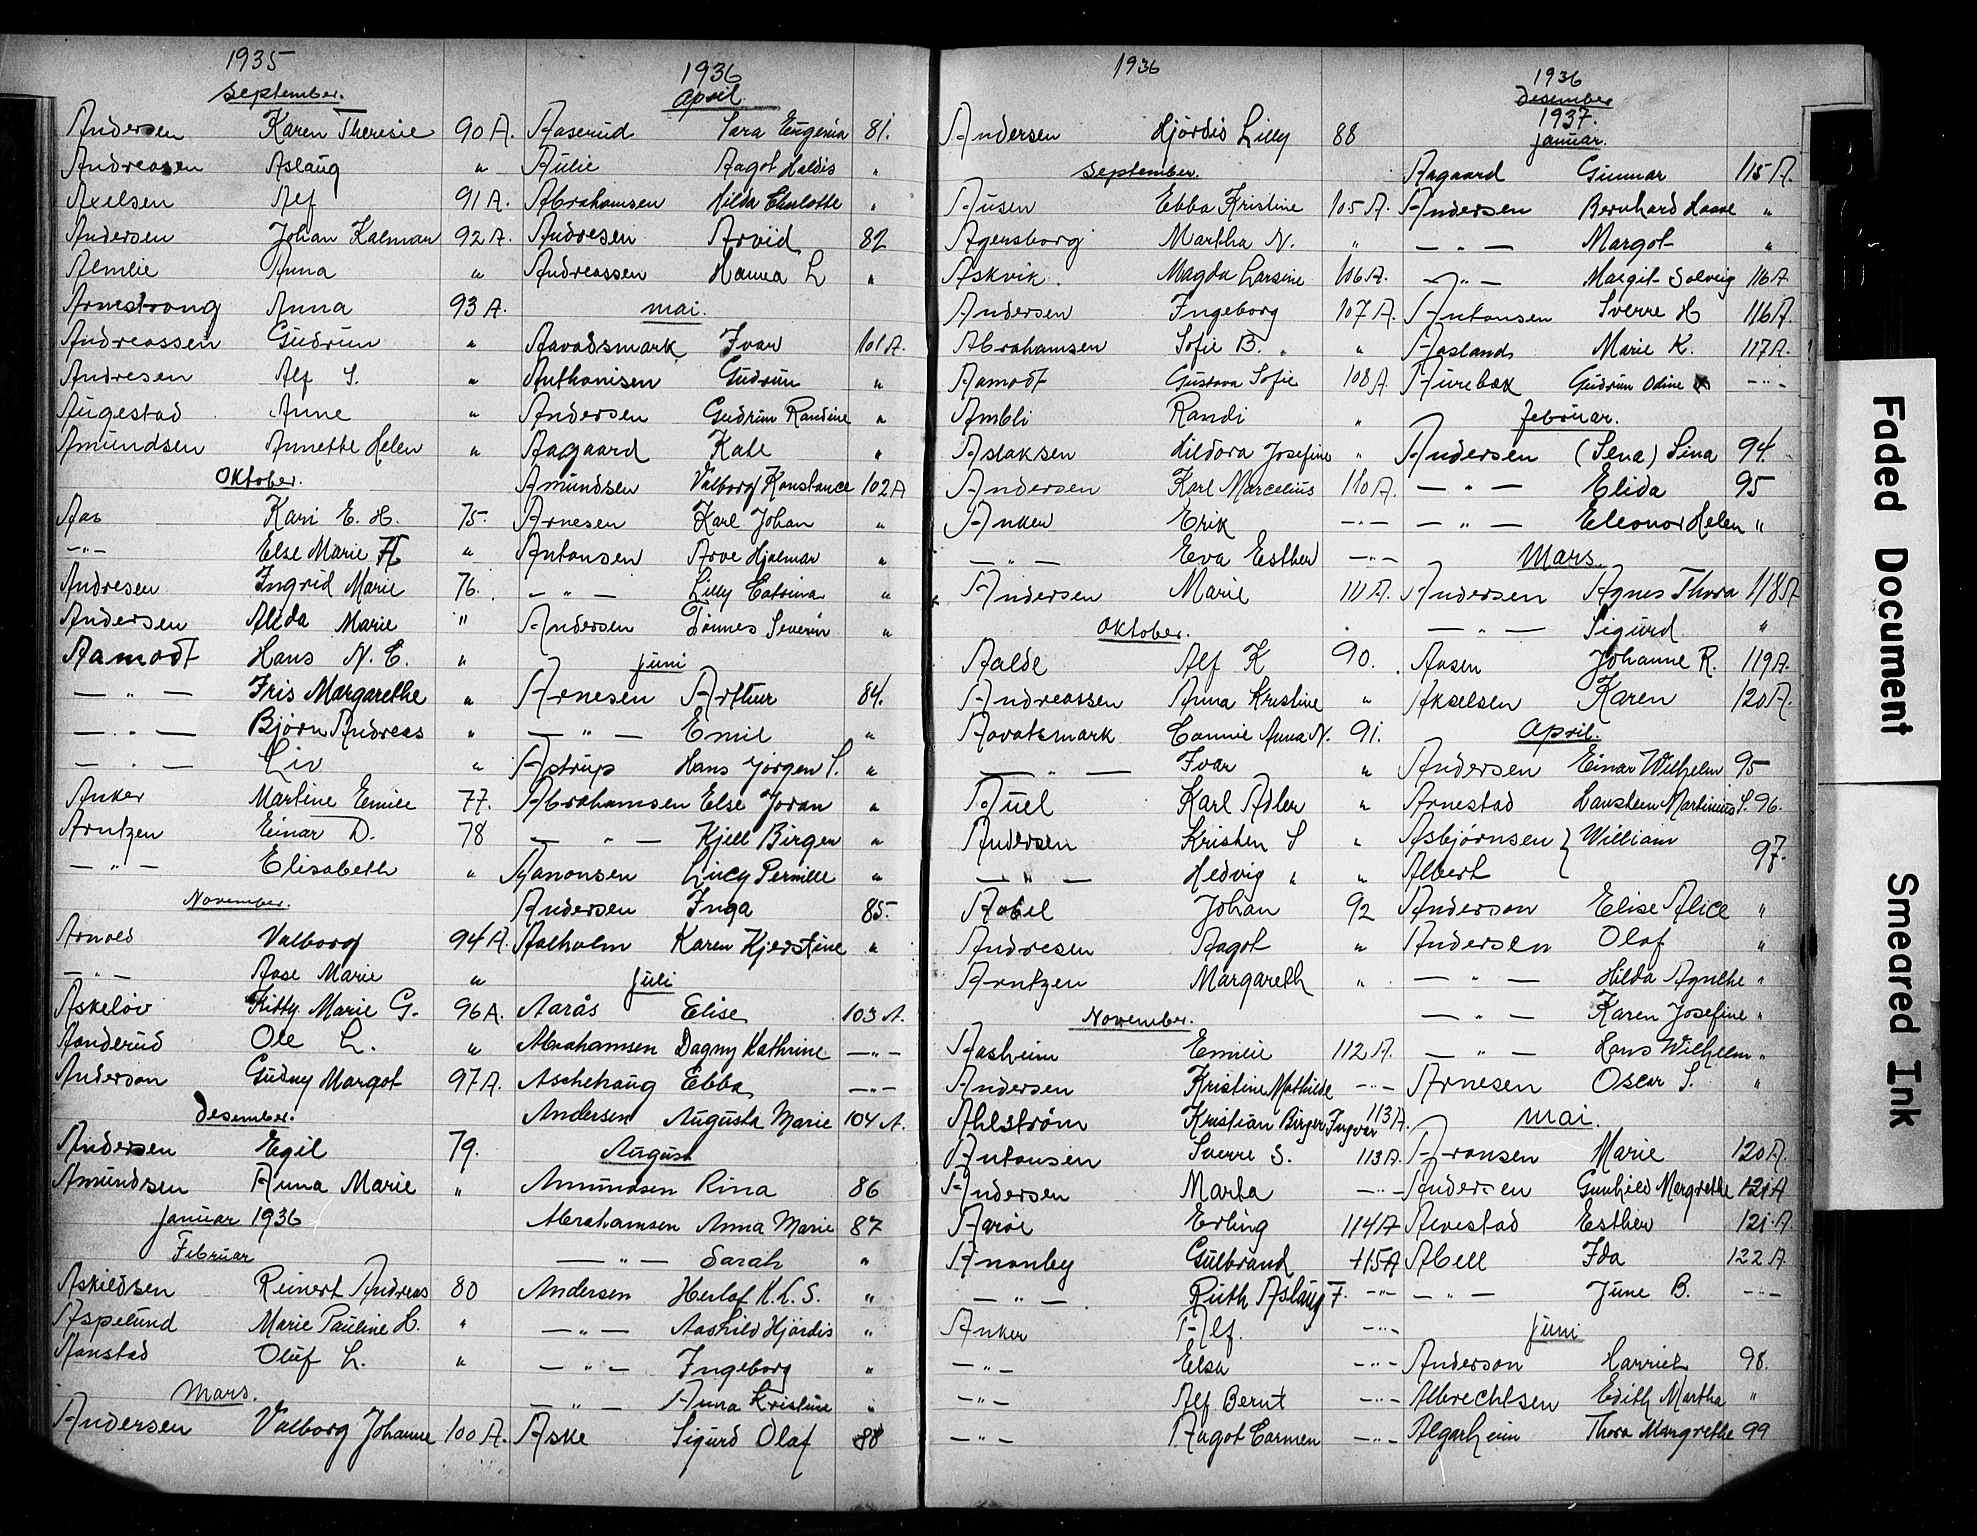 1935
September.
Andersen Karen Theresie 90 A.
Andreasen Aslaug "
Axelsen Alf 91 A.
Andersen Johan Kalman 92 A.
Almlie Anna "
Armstrong Anna 93 A.
Andreassen Gudrun "
Andresen Alf S. "
Augestad Anne "
Amundsen Annette Helen "
Oktober.
Aas Kari E. H. 75.
— " — Else Marie H "
Andresen Ingrid Marie 76.
Andersen Alida Marie "
Aamodt Hans N. C. "
— " — Iris Margarethe "
— " — Bjørn Andreas "
— " — Liv "
Anker Martine Emilie 77.
Arntzen Einar D. 78
— " — Elisabeth "
November.
Arnold Valborg 94 A.
— " — Aase Marie "
Askeløv Kitty Marie G. 96 A.
Aanderud Ole L. "
Anderson Gudny Margot 97 A.
Desember.
Andersen Egil 79.
Amundsen Anna Marie "
Januar 1936
Februar
Askildsen Reinert Andreas 80
Aspelund Marie Pauline H. "
Aanstad Oluf L. "
Mars.
Andersen Valborg Johanne 100 A.
1936
April.
Aaserud Sara Eugenia 81.
Aulie Aagot Haldis "
Abrahamsen Hilda Charlotte "
Andresen Arvid 82
Andreassen Hanna L "
mai.
Aavadsmark Ivar 101 A.
Anthonisen Gudrun "
Andersen Gudrun Randine "
Aagaard Kate "
Amundsen Valborg Konstance 102 A
Arnesen Karl Johan "
Antonsen Arve Hjalmar "
— " — Lilly Catrina "
Andersen Tønnes Severin "
juni
Arnesen Arthur 84.
— " — Emil "
Astrup Hans Jørgen S. "
Abrahamsen Else Joran "
— " — Kjell Birger "
Aanonsen Lucy Pernille "
Andersen Inga 85.
Aalholm Karen Kjerstine "
Juli
Aarås Elise 103 A.
Abrahamsen Dagny Kathrine — " —
Aschehaug Ebba — " —
Andersen Augusta Marie 104 A.
August
Amundsen Rina 86
Abrahamsen Anna Marie 87
— " — Sarah "
Andersen Herlof K. L. S. "
— " — Aashild Hjørdis "
— " — Ingeborg "
— " — Anna Kristine "
Aske Sigurd Olaf 88
1936
Andersen Hjørdis Lilly 88
September.
Ausen Ebba Kristine 105 A.
Agersborg Martha N. "
Askvik. Magda Larsine 106 A.
Andersen Ingeborg 107 A.
Abrahamsen Sofie B. "
Aamodt Gustava Sofie 108 A.
Ambli Randi "
Aslaksen Hildora Josefine "
Andersen Karl Marcelius 110 A.
Anker Erik — " —
— " — Eva Esther — " —
Andersen Marie 111 A.
Oktober.
Aalde Alf K 90.
Andreassen Anna Kristine "
Aavatsmark Connie Anna N. 91.
— " — Ivar "
Auel Karl Adler "
Andersen Kristen S "
— " — Hedvig "
Aabel Johan 92
Andresen Aagot "
Arntzen Margareth "
November.
Aasheim Emilie 112 A.
Andersen Kristine Mathilde — " —
Ahlstrøm Kristian Birger Ingvar 113 A.
Antonsen Sverre S. 113 A.
Andersen Marta — " —
Aarøe Erling 114 A
Ananby Gulbrand 115 A
— " — Ruth Aslaug F. — " —
Anker Alf. — " —
— " — Elsa — " —
— " — Alf Bernt — " —
— " — Aagot Carmen — " —
1936
Desember
1937.
Januar.
Aagaard Gunnar 115 A.
Andersen Bernhard Haase "
— " — Margot "
— " — Margit Solveig 116 A
Antonsen Sverre H 116 A.
Aasland Marie K. 117 A.
Aurebæk Gudrun Odine — " —
Februar.
Andersen (Sena) Sina 94.
— " — Elida 95
— " — Eleonor Helen "
Mars.
Andersen Agnes Thora 118 A
— " — Sigurd "
Aasen Johanne R. 119 A.
Akselsen Karen 120 A.
April.
Andersen Einar Wilhelm 95
Arnestad Haustein Martinius S. 96.
Asbjørnsen } William 97.
Albert
Anderson Elise Alice "
Andersen Olaf "
— " — Hilda Agnethe "
— " — Karen Josefine "
— " — Hans Wilhelm "
Arnesen Oscar S. "
mai.
Aronsen Marie 120 A.
Andersen Gunhild Margrethe 121 A
Alvestad Esther 121. A.
Abell Ida 122 A.
— " — June B. — " —
Juni
Anderson Harriet 98.
Albrechtsen Edith Martha "
Algarheim Thora Margrethe 99
Faded Document
Smeared Ink